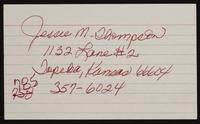 Jessie M. Thompson
1132 Lane #2
Topeka, Kansas 66604
357-6024